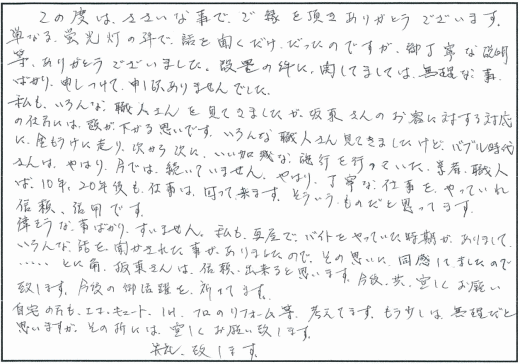 この度は、ささいな事で、ご縁を頂きありがとうございます。
単なる、蛍光灯の件で、話を聞くだけ、だったのですが、御丁寧な説明
等、ありがとうございました。設置の件に、関してましては、無理な事
ばかり、申しつけて、申し訳ありませんでした。
私も、いろんな、職人さんを見てきましたが、坂東さんのお客に対する対応
の仕方には、頭が下がる思いです。いろんな職人さん見てきましたけど、バブル時代
に、金もうけに走り、次から次に、いい加減な施行を行っていた、業者、職人
さんは、やはり、今では、続いていません。やはり、丁寧な仕事を、やっていれ
ば、10年、20年後も、仕事は、回って来ます。そういう、ものだと思ってます。
信頼、信用です。
偉そうな事ばかり、すいません。私も、畳屋で、バイトをやっていた時期が、ありまして、
いろんな、話を、聞かされた事が、ありましたので、その思いに、同感してましたので
‥‥‥とに角、坂東さんは、信頼、出来ると思います。今後、共、宜しくお願い
致します。今後の御活躍を、祈ってます。
自宅の方も、エコ、キュート、IH、フロのリフォーム等、考えてます。もう少しは、無理だと
思いますが、その折には、宜しくお願い致します。
失礼、致します。